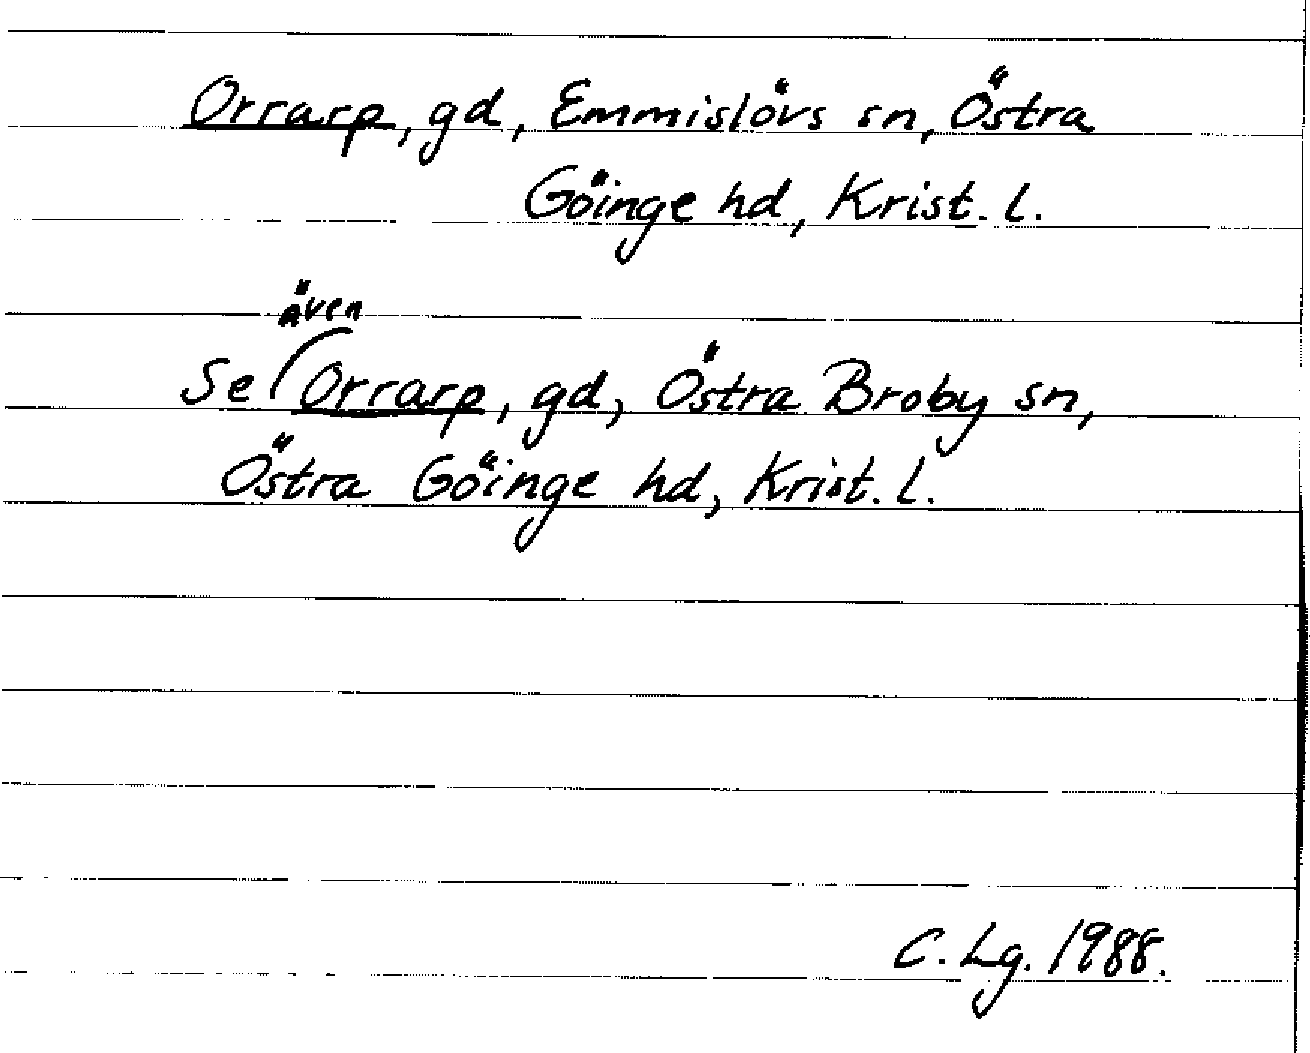 Orrarp, gd, Emmislövs sn, Östra
Göinge hd, Krist. l.
även
Se Orrarp, gd, Östra Broby sn,
Östra Göinge hd, Krist. l.
C. Lg. 1988.